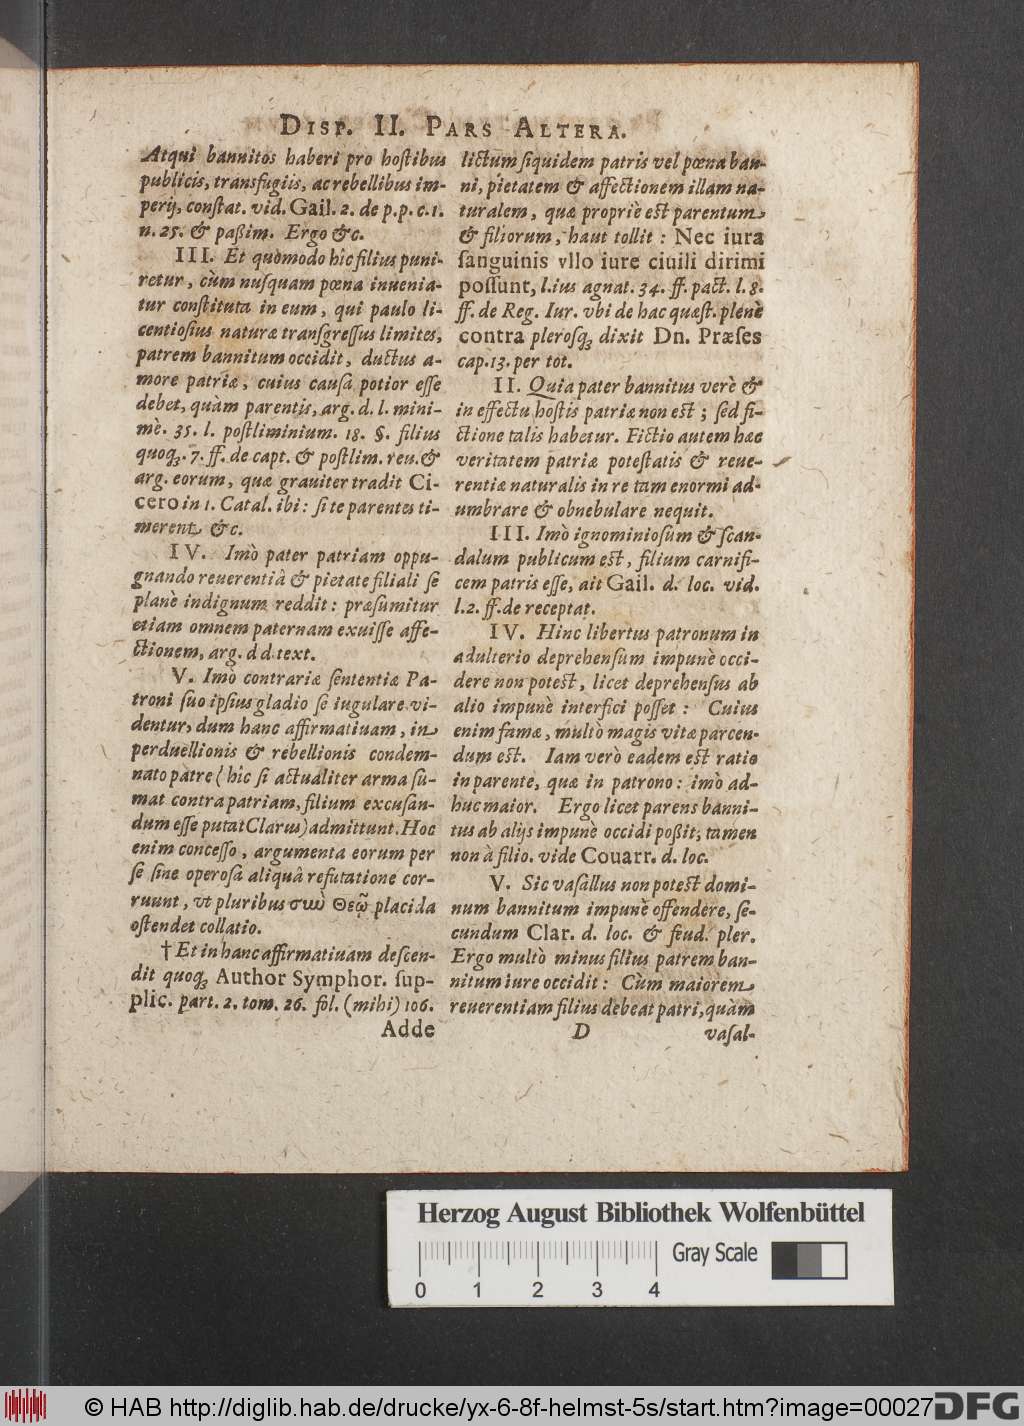 DISP. II. PARS ALTERA.
Atqui bannitos haberi pro hoſtibus
publicis, transfugiis, ac rebellibus im-
perij, conſtat. vid. Gail. 2. de p.p. c. 1.
n. 25. & paßim. Ergo &c.
III. Et quomodo hic filius puni-
retur, cùm nuſquam pœna inuenia-
tur conſtituta in eum, qui paulo li-
centioſius naturæ tranſgreſſus limites,
patrem bannitum occidit, ductus a-
more patriæ, cuius cauſa potior eſſe
debet, quàm parentis, arg. d. l. mini-
mè. 35. l. poſtliminium. 18. §. filius
quoq́ꝫ. 7. ff. de capt. & poſtlim. reu. &
arg. eorum, quæ grauiter tradit Ci-
cero in 1. Catal. ibi: ſi te parentes ti-
merent &c.
IV. Imò pater patriam oppu-
gnando reuerentiâ & pietate filiali ſe
planè indignum reddit: præſumitur
etiam omnem paternam exuiſſe affe-
ctionem, arg. d d. text.
V. Imò contrariæ ſententiæ Pa-
troni ſuo ipſius gladio ſe iugulare vi-
dentur, dum hanc affirmatiuam, in
perduellionis & rebellionis condem-
nato patre (hic ſi actualiter arma ſu-
mat contra patriam, filium excuſan-
dum eſſe putat Clarus) admittunt. Hoc
enim conceſſo, argumenta eorum per
ſe ſine operoſa aliquâ refutatione cor-
ruunt, vt pluribus σὺν Θεῷ placida
oſtendet collatio.
† Et in hanc affirmatiuam deſcen-
dit quoq́ꝫ Author Symphor. ſup-
plic. part. 2. tom. 26. fol. (mihi) 106.
Adde
lictum ſiquidem patris vel pœna ban-
ni, pietatem & affectionem illam na-
turalem, quæ propriè eſt parentum
& filiorum, haut tollit: Nec iura
ſanguinis vllo iure ciuili dirimi
poſſunt, l. ius agnat. 34. ff. pact. l. 8.
ff. de Reg. Iur. vbi de hac quæſt. plenè
contra pleroſq́ꝫ dixit Dn. Præſes
cap. 13. per tot.
II. Quia pater bannitus verè &
in effectu hoſtis patriæ non eſt; ſed fi-
ctione talis habetur. Fictio autem hæc
veritatem patriæ poteſtatis & reue-
rentiæ naturalis in re tam enormi ad-
umbrare & obnebulare nequit.
III. Imò ignominioſum & ſcan-
dalum publicum eſt, filium carnifi-
cem patris eſſe, ait Gail. d. loc. vid.
l. 2. ff. de receptat.
IV. Hinc libertus patronum in
adulterio deprehenſum impunè occi-
dere non poteſt, licet deprehenſus ab
alio impunè interfici poſſet: Cuius
enim famæ, multò magis vitæ parcen-
dum eſt. Iam verò eadem eſt ratio
in parente, quæ in patrono: imò ad-
huc maior. Ergo licet parens banni-
tus ab alijs impunè occidi poßit, tamen
non à filio. vide Couarr. d. loc.
V. Sic vaſallus non poteſt domi-
num bannitum impunè offendere, ſe-
cundum Clar. d. loc. & feud. pler.
Ergo multò minus filius patrem ban-
nitum iure occidit: Cùm maiorem
reuerentiam filius debeat patri, quàm
D vaſal-
Herzog August Bibliothek Wolfenbüttel
Gray Scale
0 1 2 3 4
© HAB http://diglib.hab.de/drucke/yx-6-8f-helmst-5s/start.htm?image=00027
DFG